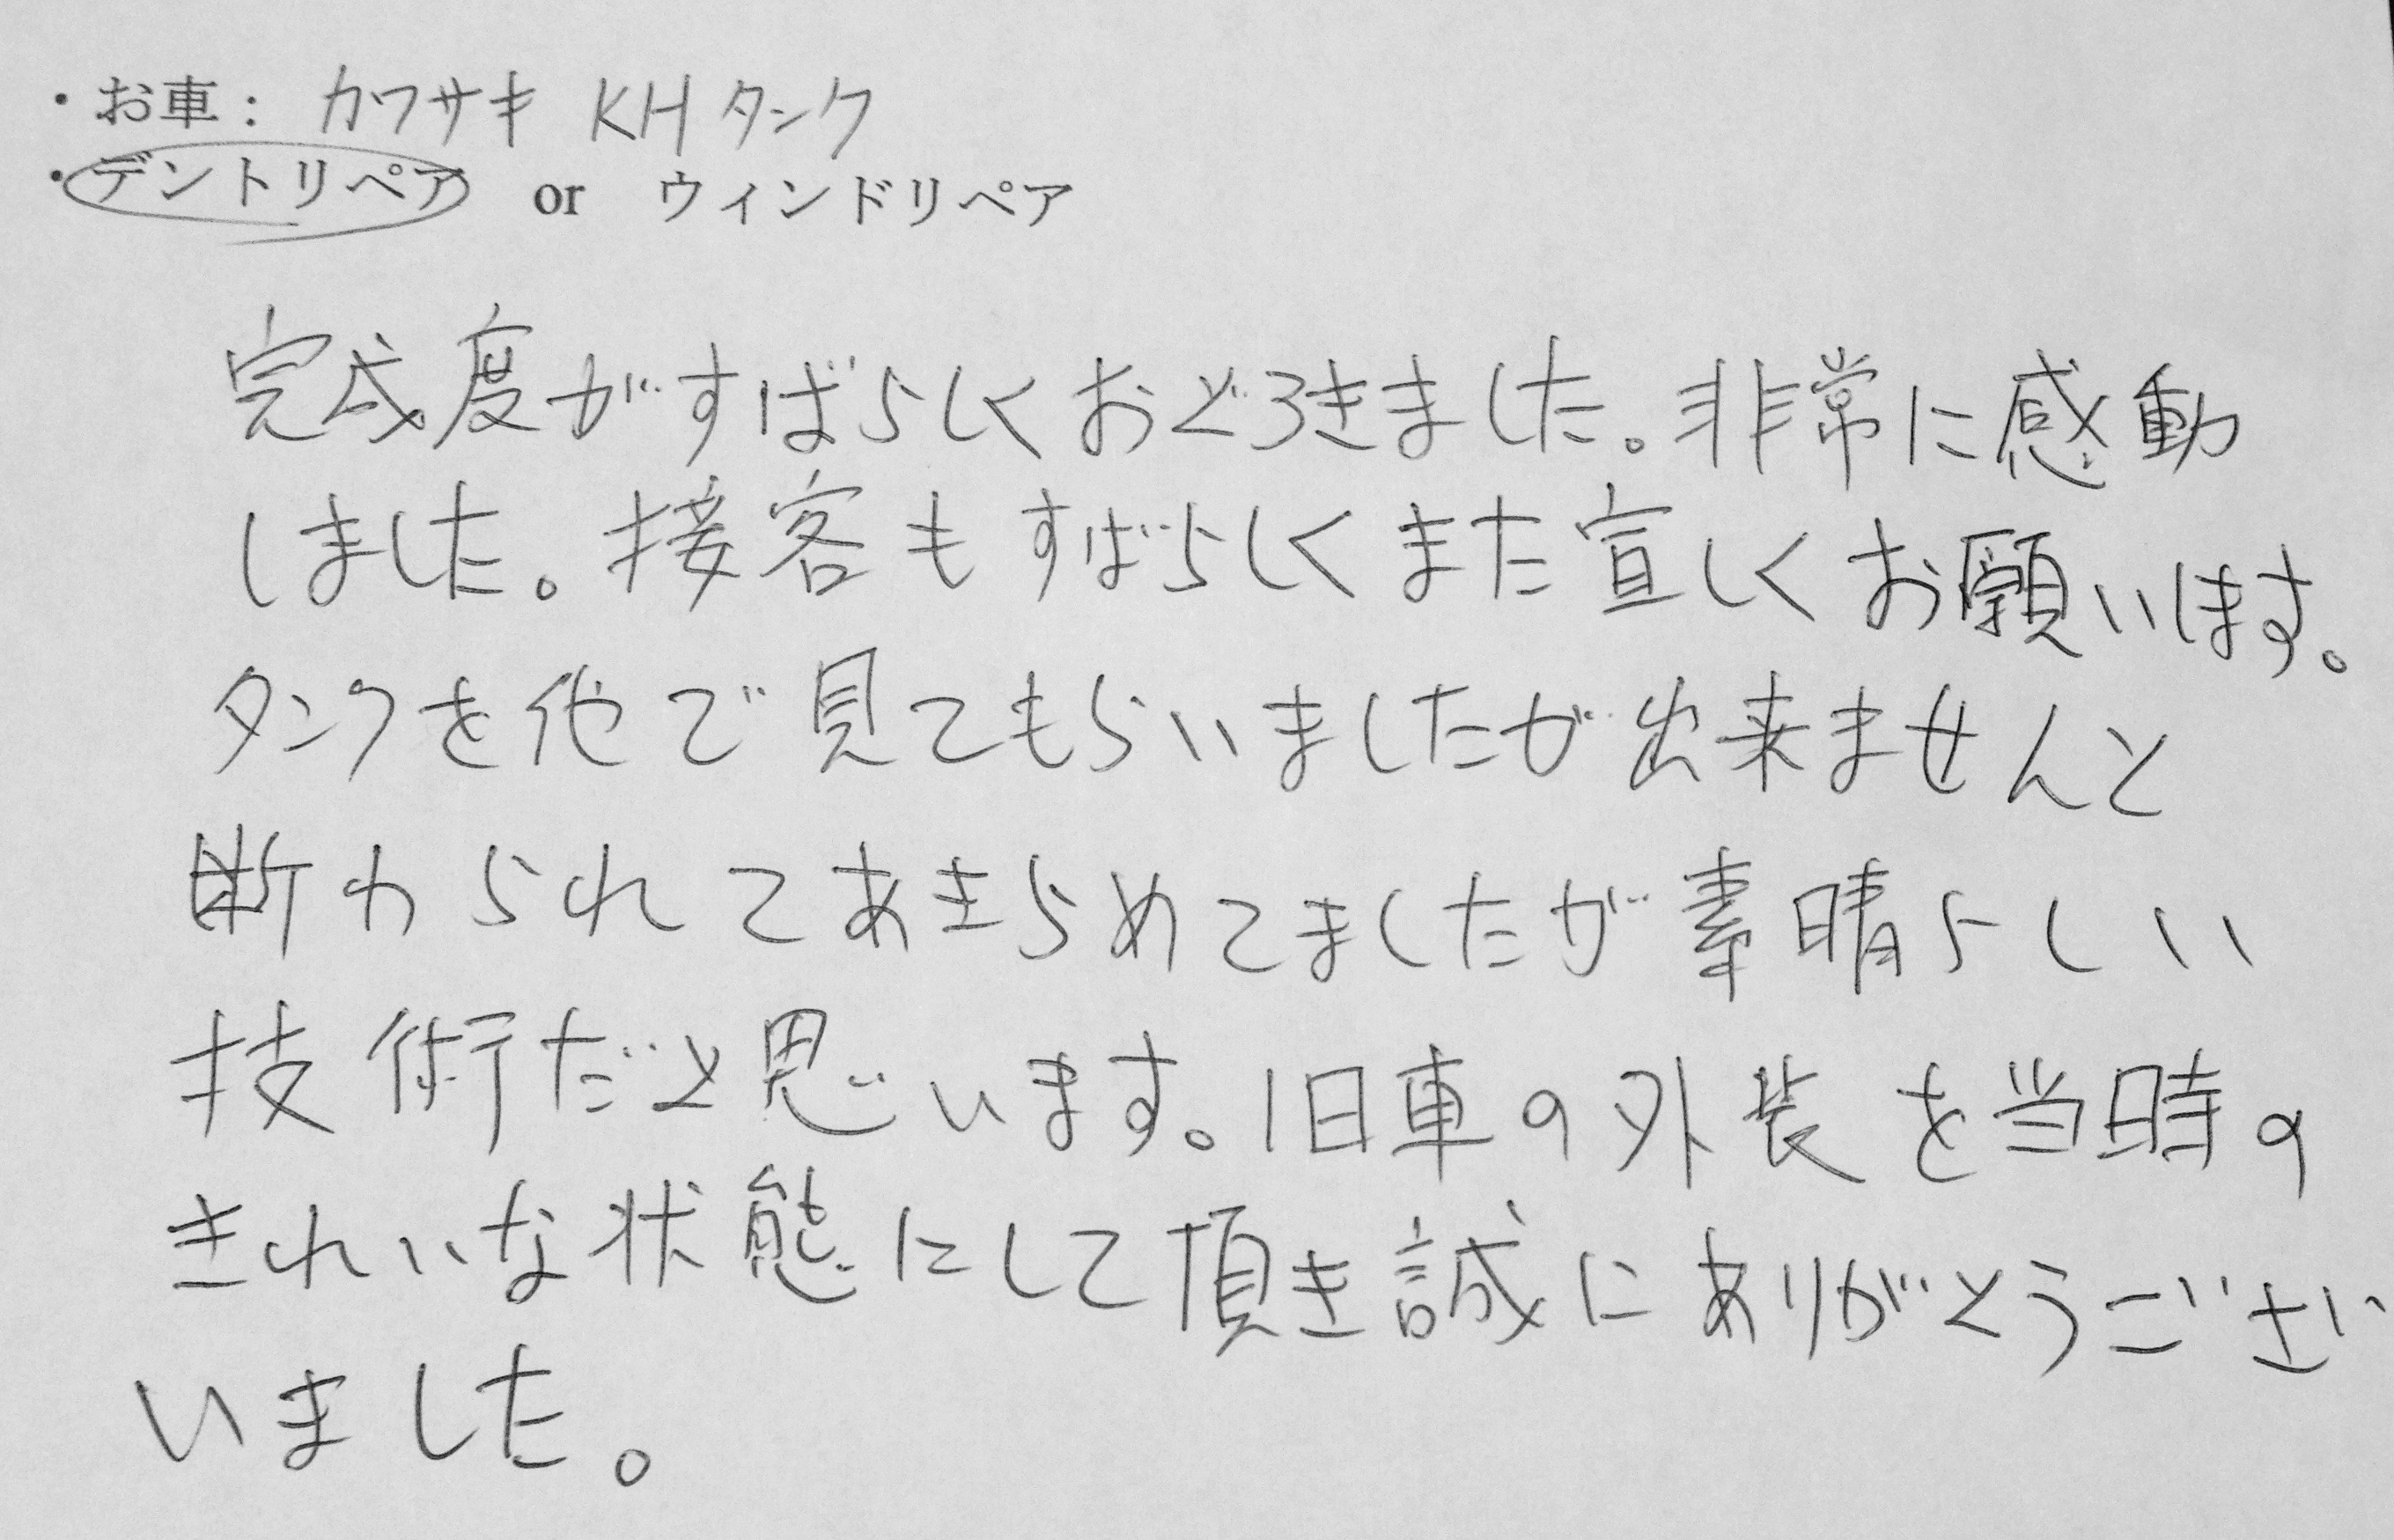 ・お車： カワサキ KHタンク
・デントリペア or ウィンドリペア
完成度がすばらしくおどろきました。非常に感動
しました。接客もすばらしくまた宜しくお願いします。
タンクを他で見てもらいましたが出来ませんと
断わられてあきらめてましたが素晴らしい
技術だと思います。旧車の外装を当時の
きれいな状態にして頂き誠にありがとうござ
いました。